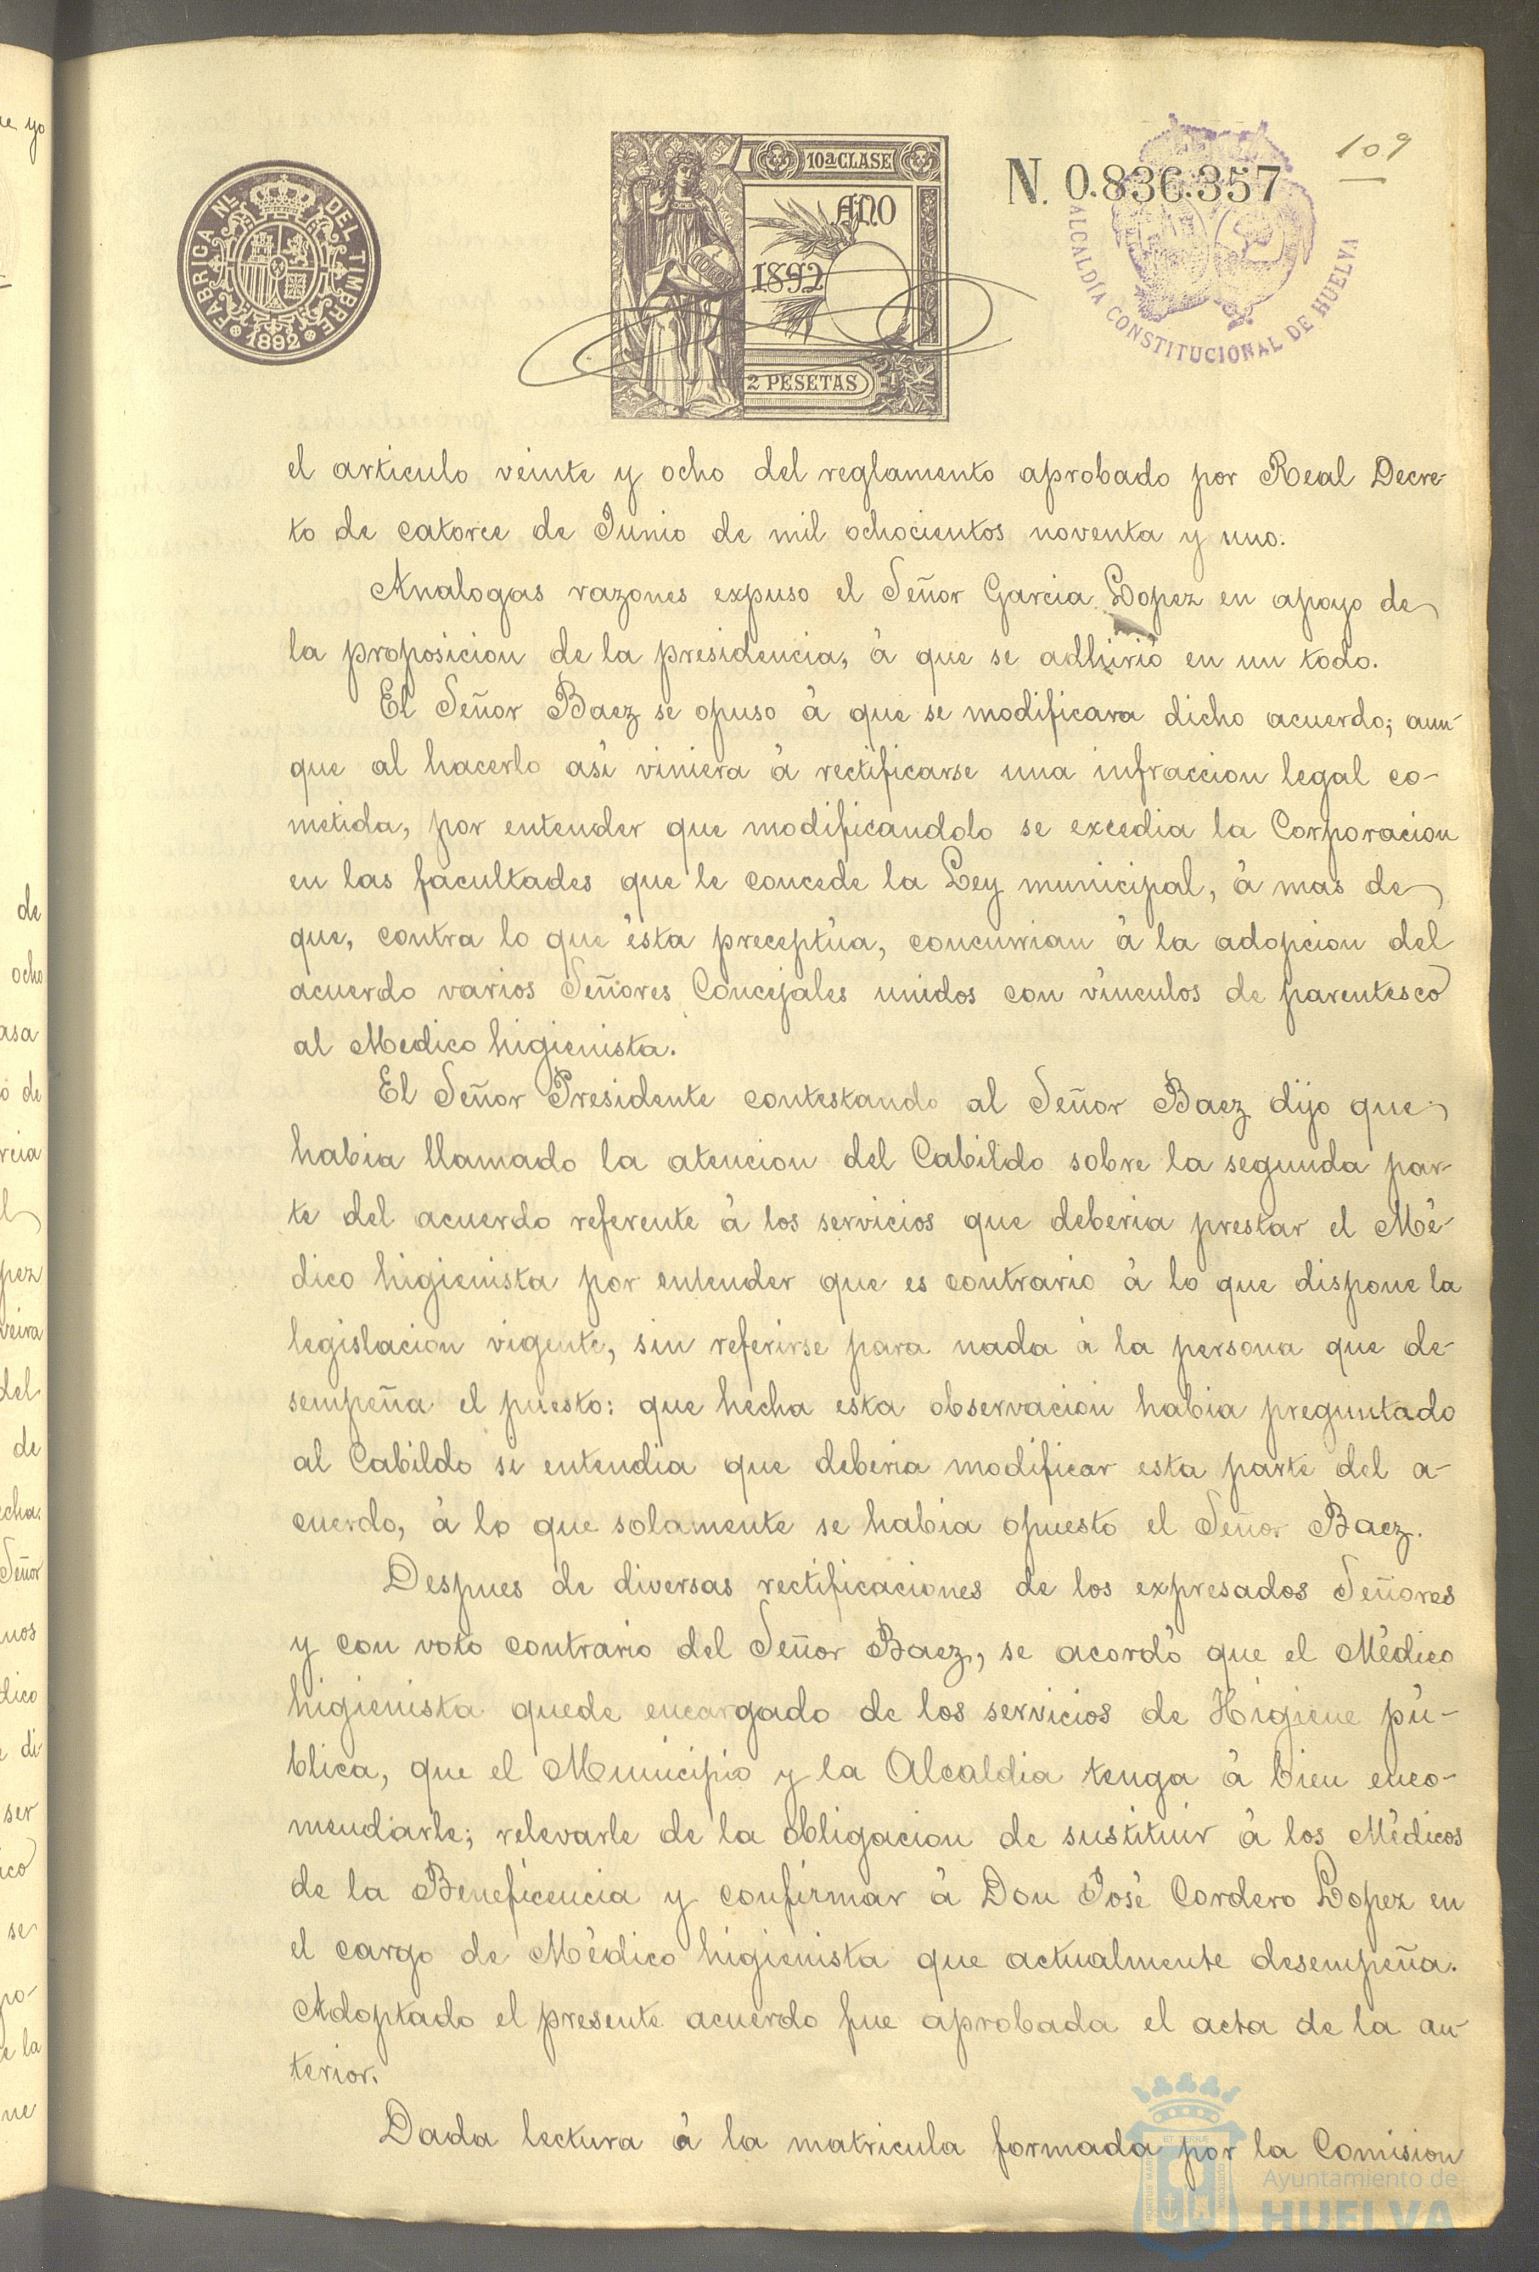 109
N. 0.836.357
FABRICA Nal. DEL TIMBRE
1892
10ª CLASE
AÑO
1892
2 PESETAS
ALCALDÍA CONSTITUCIONAL DE HUELVA
el articulo veinte y ocho del reglamento aprobado por Real Decre-
to de catorce de Junio de mil ochocientos noventa y uno.
Analogas razones expuso el Señor Garcia Lopez en apoyo de
la proposicion de la presidencia, á que se adhirió en un todo.
El Señor Baez se opuso á que se modificara dicho acuerdo; aun-
que al hacerlo asi viniera á rectificarse una infraccion legal co-
metida, por entender que modificandolo se excedia la Corporacion
en las facultades que le concede la Ley municipal, á mas de
que, contra lo que ésta preceptúa, concurrian á la adopcion del
acuerdo varios Señores Concejales unidos con vínculos de parentesco
al Medico higienista.
El Señor Presidente contestando al Señor Baez dijo que
habia llamado la atencion del Cabildo sobre la segunda par-
te del acuerdo referente á los servicios que deberia prestar el Mé-
dico higienista por entender que es contrario á lo que dispone la
legislacion vigente, sin referirse para nada á la persona que de-
sempeña el puesto: que hecha esta observacion habia preguntado
al Cabildo si entendia que deberia modificar esta parte del a-
cuerdo, á lo que solamente se habia opuesto el Señor Baez.
Despues de diversas rectificaciones de los expresados Señores
y con voto contrario del Señor Baez, se acordó que el Médico
higienista quede encargado de los servicios de Higiene pú-
blica, que el Municipio y la Alcaldia tenga á bien enco-
mendarle; relevarle de la obligacion de sustituir á los Médicos
de la Beneficencia y confirmar á Don José Cordero Lopez en
el cargo de Médico higienista que actualmente desempeña.
Adoptado el presente acuerdo fue aprobada el acta de la an-
terior.
Dada lectura á la matricula formada por la Comision
Ayuntamiento de
HUELVA